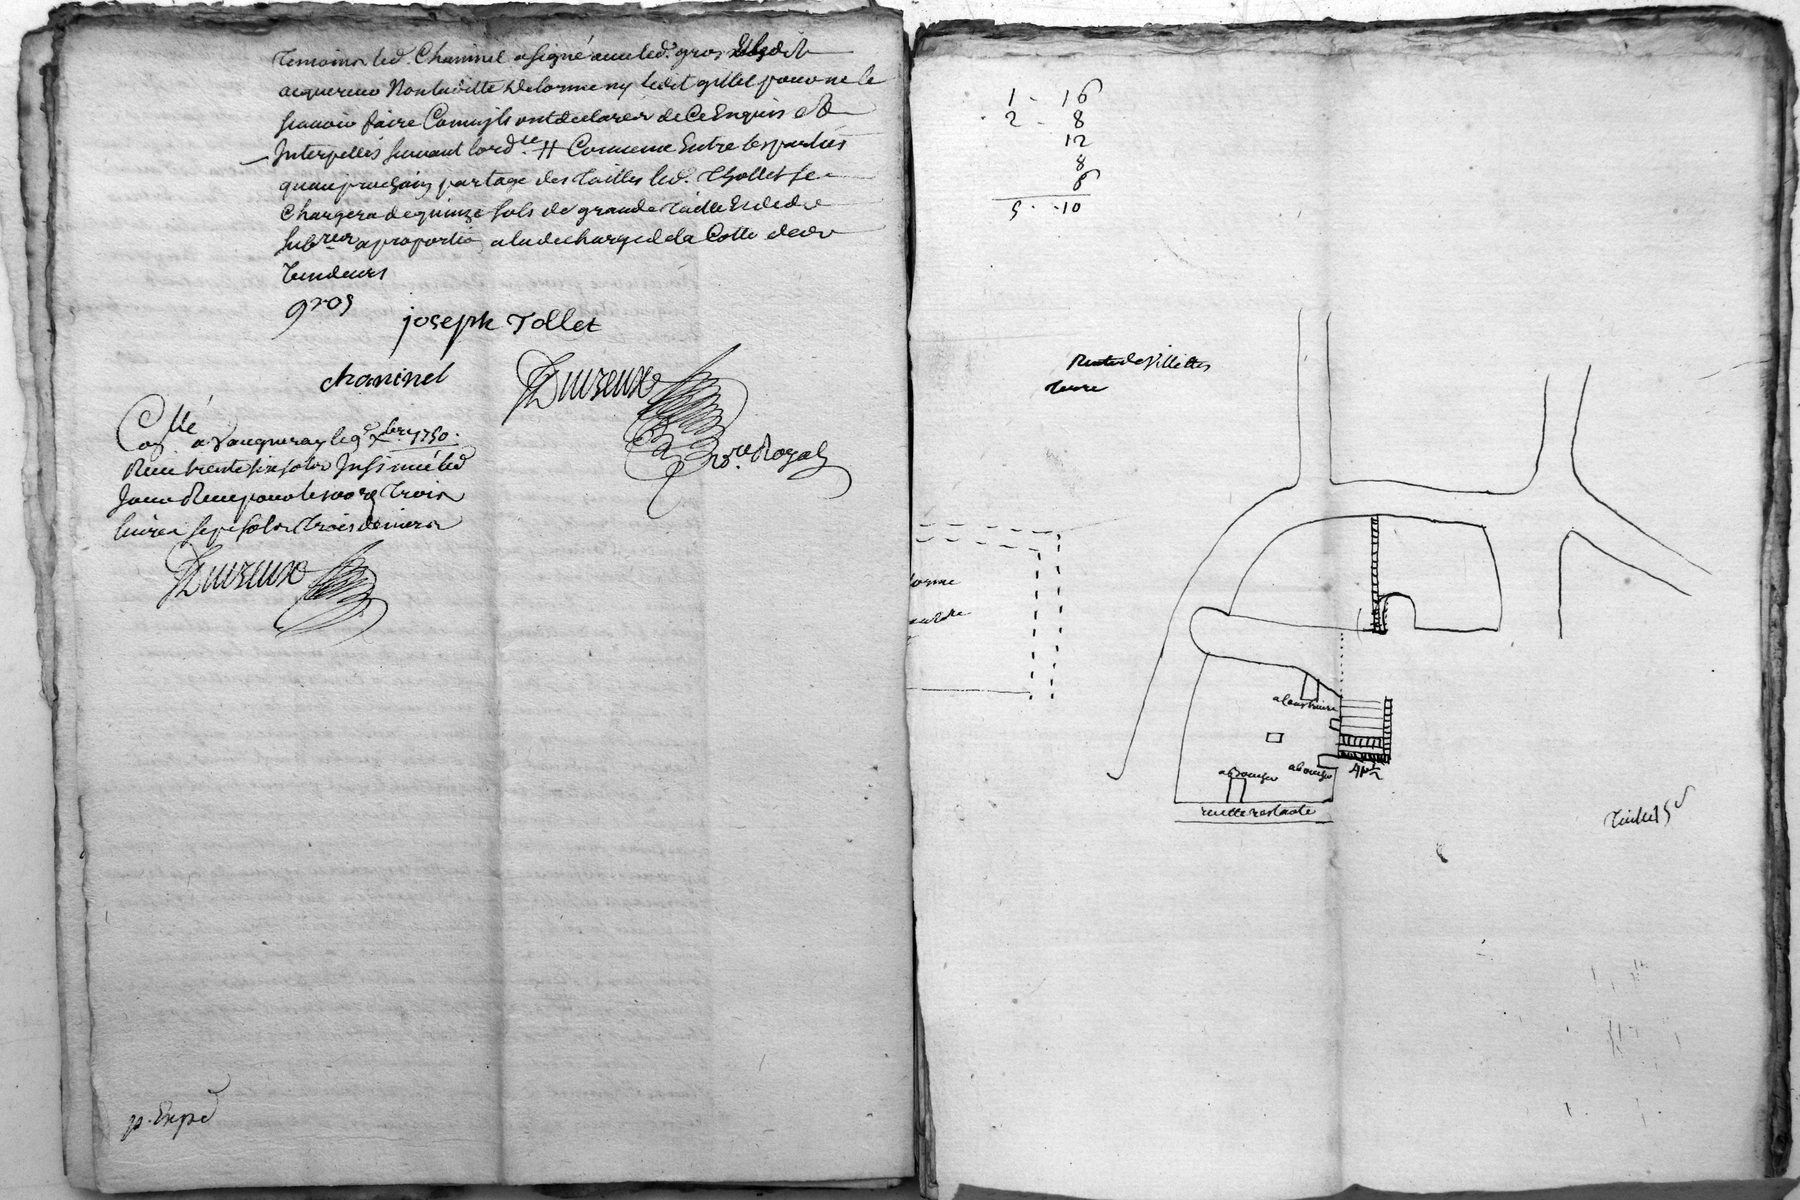 Temoins led. Chaninel a signé avec led. gros
acquereur Non laditte Delorme ny ledit gillet pour ne le
scavoir faire Comm'ils ont declarés de Ce Enquis et
Interpellés suivant lord.ce # Convenu Entre les parties
quau prochain partage des Tailles led. Thollet se
Chargera de quinze sols de grande Taille Et de
a proportion a la decharge de la Cotte des
Vendeurs
gros
joseph Tollet
chaninel
Duzeux
No.re Royal
Con.llé a Vaugneray le 9e xbre 1750.
Receu trente six sols Insinué led
Jour Receu pour le 100e Trois
livres sept sols Trois deniers
Duzeux
p. Expé
1 - 16
2 - 8
12
8
8
5 - 10
Villettes
Terre
lorme
a Construire
a Boucher
a Boucher
ruelle restante